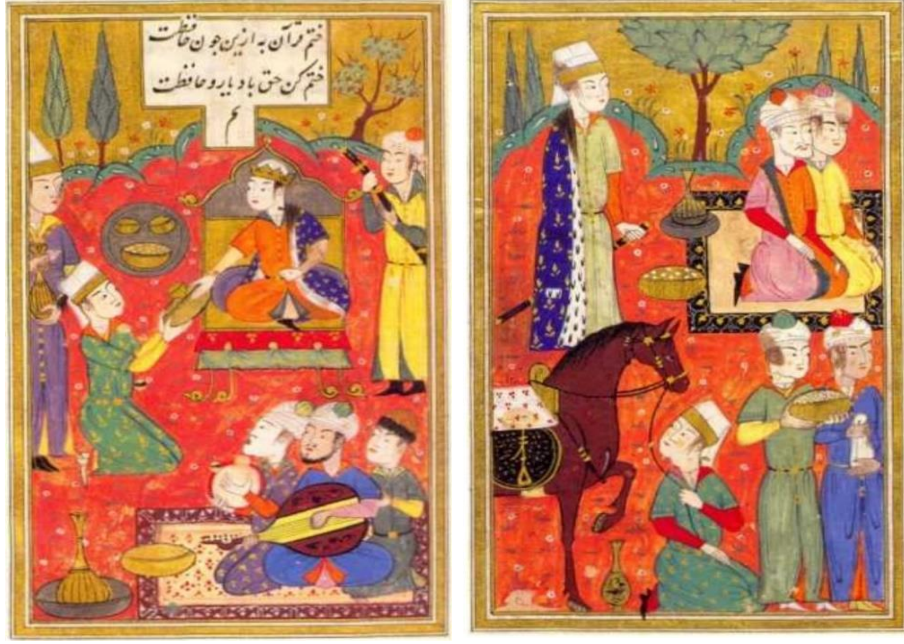 ختم قرآن به ازین جون حافظت
ختم کن حق باد یار و حافظت
تم